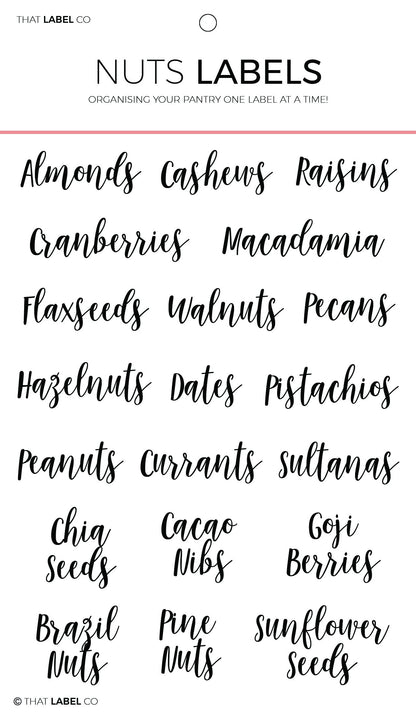 THAT LABEL CO
NUTS LABELS
ORGANISING YOUR PANTRY ONE LABEL AT A TIME!
Almonds Cashews Raisins
Cranberries Macadamia
Flaxseeds Walnuts Pecans
Hazelnuts Dates Pistachios
Peanuts Currants Sultanas
Chia Cacao Goji
Seeds Nibs Berries
Brazil Pine Sunflower
Nuts Nuts Seeds
© THAT LABEL CO